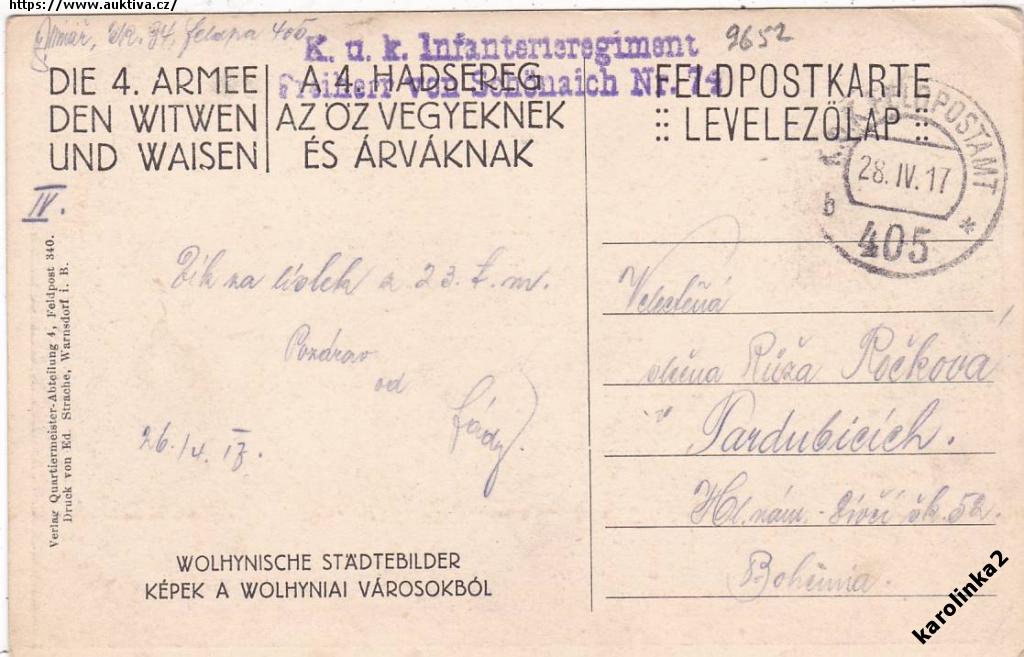 https://www.auktiva.cz/
feldpa 405
9652
K. u. k. Infanterieregiment
Freiherr von Schönaich Nr. 74
DIE 4. ARMEE
DEN WITWEN
UND WAISEN
A 4. HADSEREG
AZ ÖZVEGYEKNEK
ÉS ÁRVÁKNAK
FELDPOSTKARTE
LEVELEZŐLAP
FELDPOSTAMT
28. IV. 17
b
405
IV.
Dík za lístek z 23. t. m.
Pozdrav
od
26./4. 17.
Velectěná
slečna Růža Ročková
v Pardubicích.
Hl. nám. Dívčí šk. 52.
Bohemia.
Verlag Quartiermeister-Abteilung 4, Feldpost 340.
Druck von Ed. Strache, Warnsdorf i. B.
WOLHYNISCHE STÄDTEBILDER
KÉPEK A WOLHYNIAI VÁROSOKBÓL
karolinka2